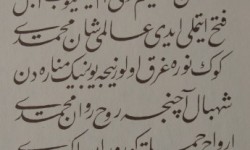 ایتمیوب اجل
فتح ایتملی ایدی عالمی شان محمدی
کوک نوره غرق اولور نیجه یوز بیک مناره دن
شهبال آچنجه روح روان محمدی
ارواح